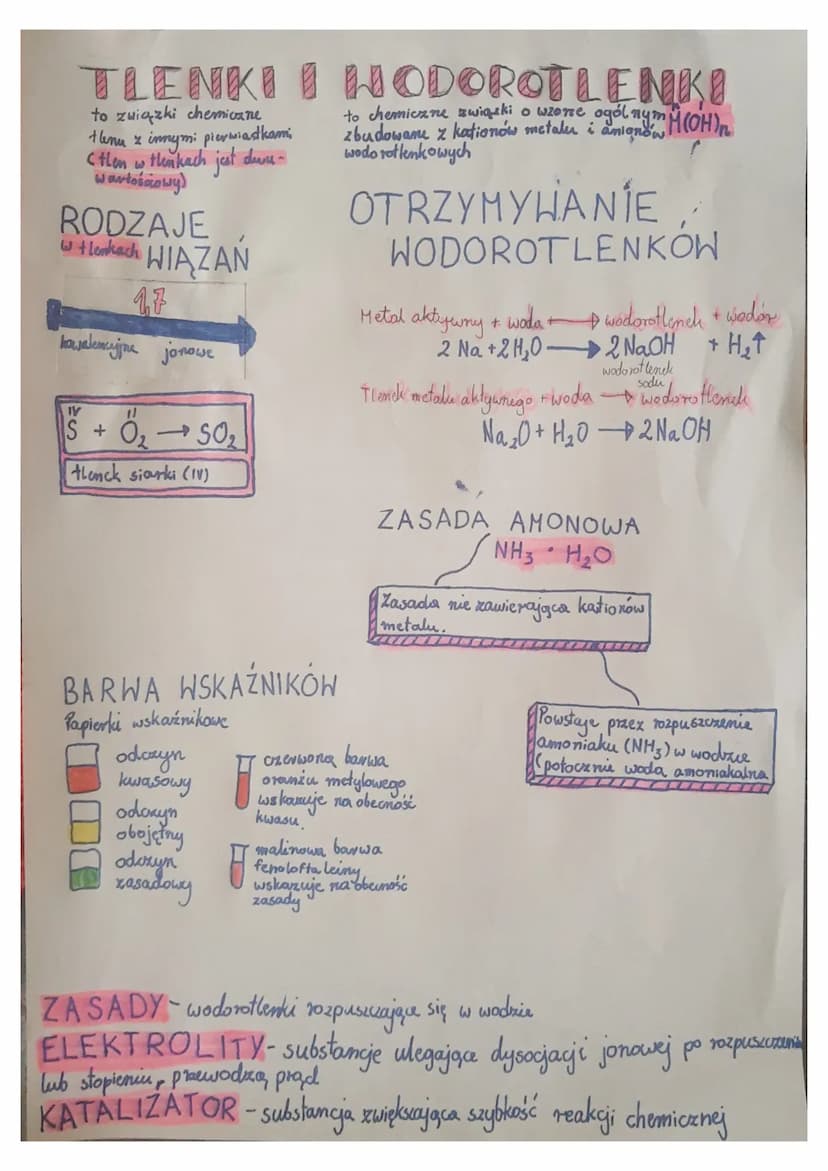 TLENKI I WODOROTLENKI
to związki chemiczne
tlenu z innymi pierwiadkami
(tlen w tlenkach jest dwu-
wartościowy)
to chemiczne związki o wzorze ogólnym M(OH)n
zbudowane z kationów metalu i anionów
wodorotlenkowych
RODZAJE
w tlenkach WIĄZAŃ
1,7
kowalencyjne jonowe
IV II
S + O₂ → SO₂
tlenek siarki (IV)
OTRZYMYWANIE
WODOROTLENKÓW
Metal aktywny + woda → wodorotlenek + wodór
2 Na + 2H₂O → 2 NaOH + H₂↑
wodorotlenek
sodu
Tlenek metalu aktywnego + woda → wodorotlenek
Na₂O + H₂O → 2NaOH
ZASADA AMONOWA
NH₃ · H₂O
Zasada nie zawierająca kationów
metalu.
Powstaje przez rozpuszczenie
amoniaku (NH₃) w wodzie
(potocznie woda amoniakalna
BARWA WSKAŹNIKÓW
Papierki wskaźnikowe
odczyn
kwasowy
odczyn
obojętny
odczyn
zasadowy
czerwona barwa
oranżu metylowego
wskazuje na obecność
kwasu.
malinowa barwa
fenoloftaleiny
wskazuje na obecność
zasady
ZASADY - wodorotlenki rozpuszczające się w wodzie
ELEKTROLITY - substancje ulegające dysocjacji jonowej po rozpuszczeniu
lub stopieniu, przewodzą prąd
KATALIZATOR - substancja zwiększająca szybkość reakcji chemicznej